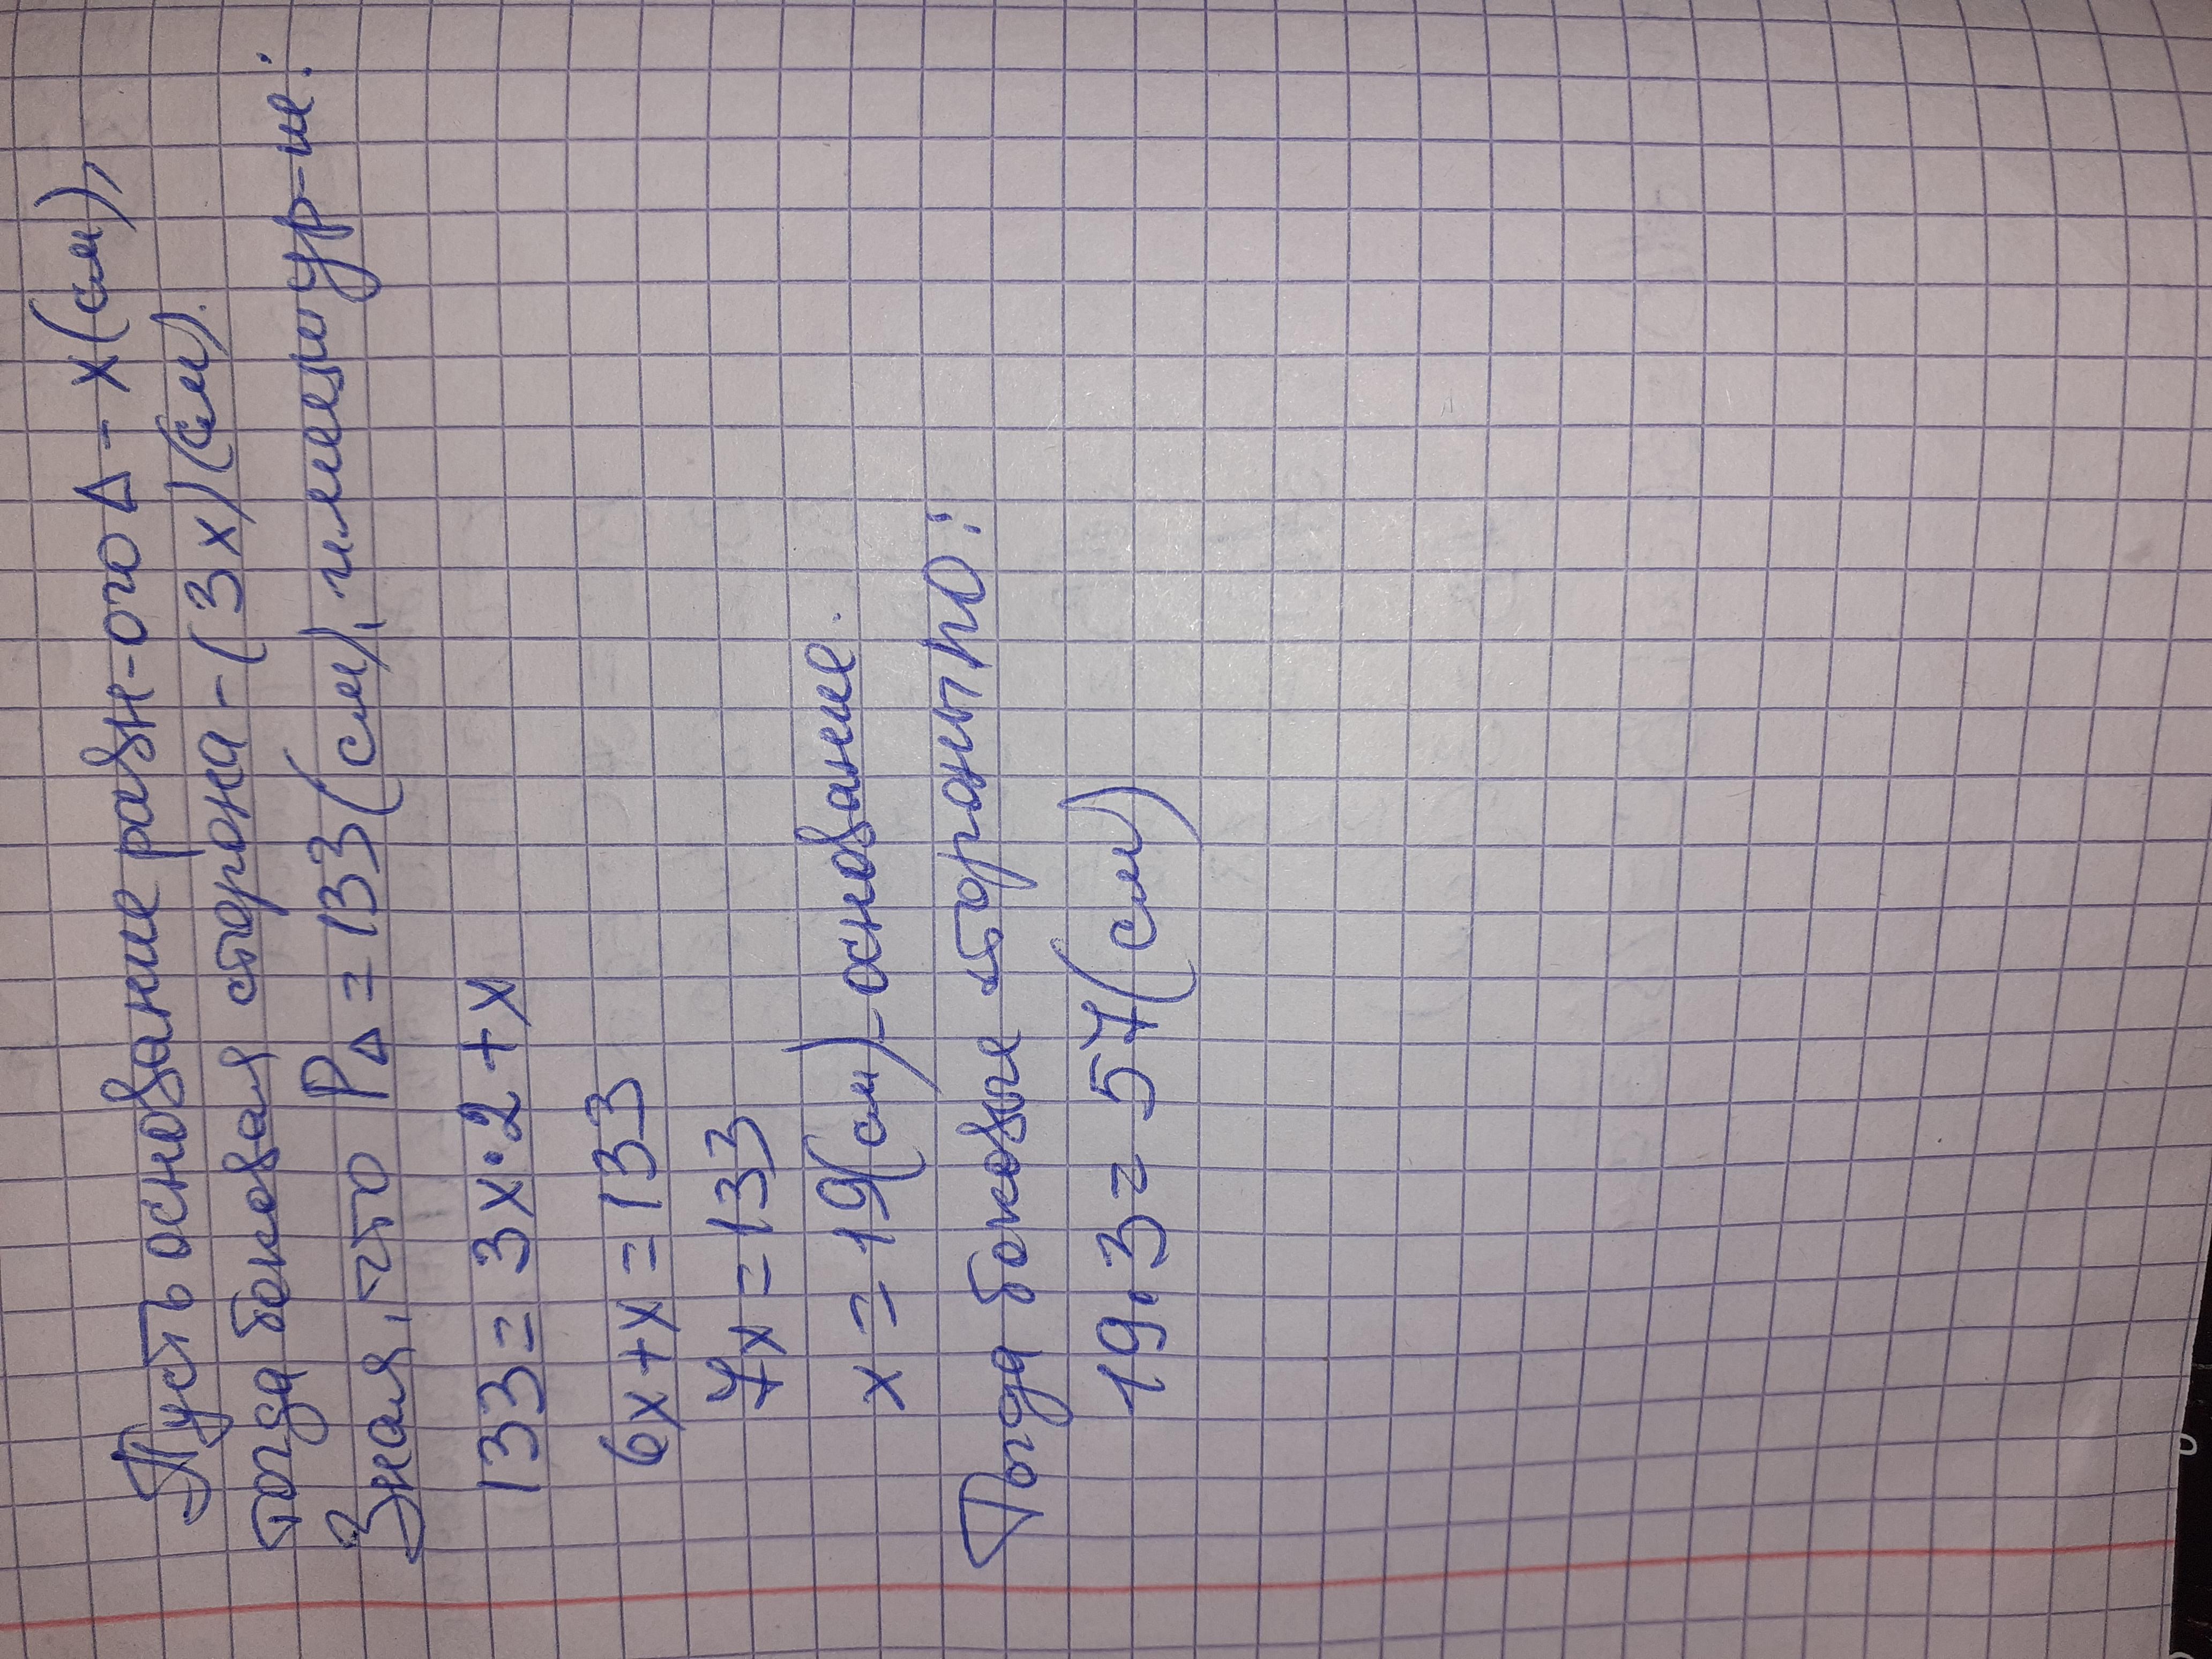 Пусть основание равн-ого Δ - x(см),
тогда боковая сторона - (3x)(см).
Зная, что PΔ = 133(см), имеем ур-ие:
133 = 3x·2+x
6x+x=133
7x=133
x=19(см)-основание.
Тогда боковые стороны по:
19·3=57(см)